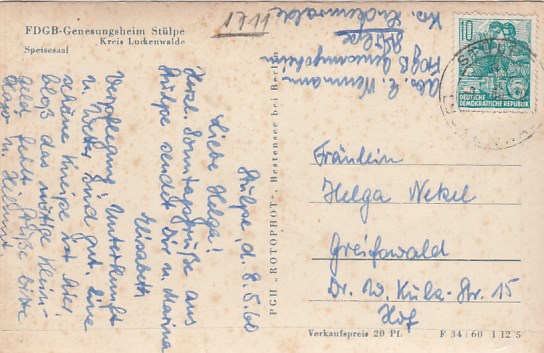 FDGB-Genesungsheim Stülpe
Kreis Luckenwalde
Speisesaal
1711
Abs. E. Neumann
FDGB Genesungsheim
Stülpe
Krs. Luckenwalde
10
DEUTSCHE
DEMOKRATISCHE REPUBLIK
Stülpe, d. 8.5.60
Liebe Helga!
Herzl. Sonntagsgrüße aus
Stülpe sendet Dir u. Marina
Elisabeth
Verpflegung, Unterkunft
u. Wetter sind gut. Eine
schöne Kneipe ist hier
bloß das nötige Klein-
geld fehlt. Grüße bitte
u. Helmut
PGH „ROTOPHOT", Bestensee bei Berlin
Fräulein
Helga Wekel
Greifswald
Dr. W. Külz-Str. 15
Hof
Verkaufspreis 20 Pf.
F 34/60 I 12 5